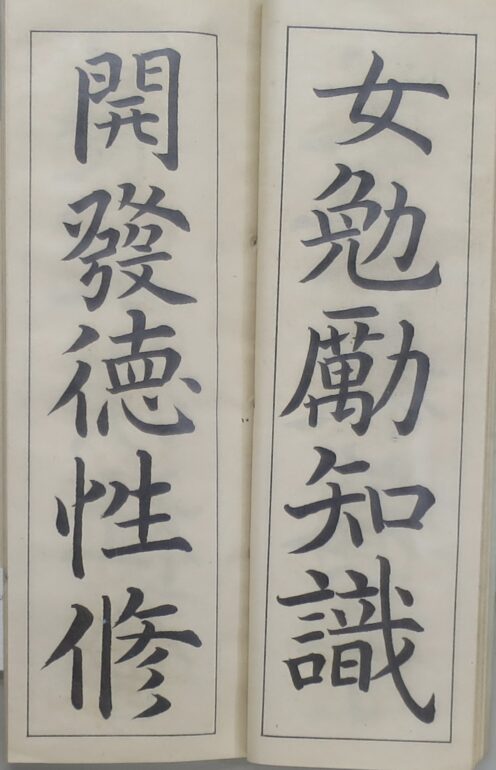 女勉勵知識
開發德性修